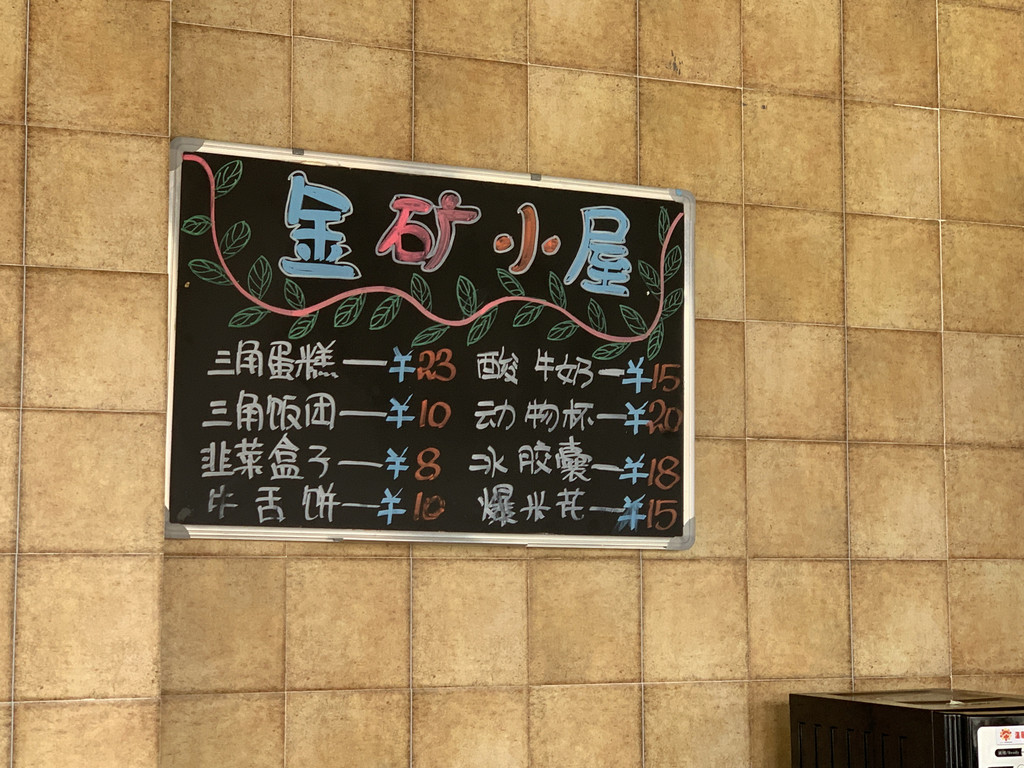 金矿小屋
三角蛋糕—¥23 酸牛奶—¥15
三角饭团—¥10 动物杯—¥20
韭菜盒子—¥8 冰胶囊—¥18
牛舌饼—¥10 爆米花—¥15